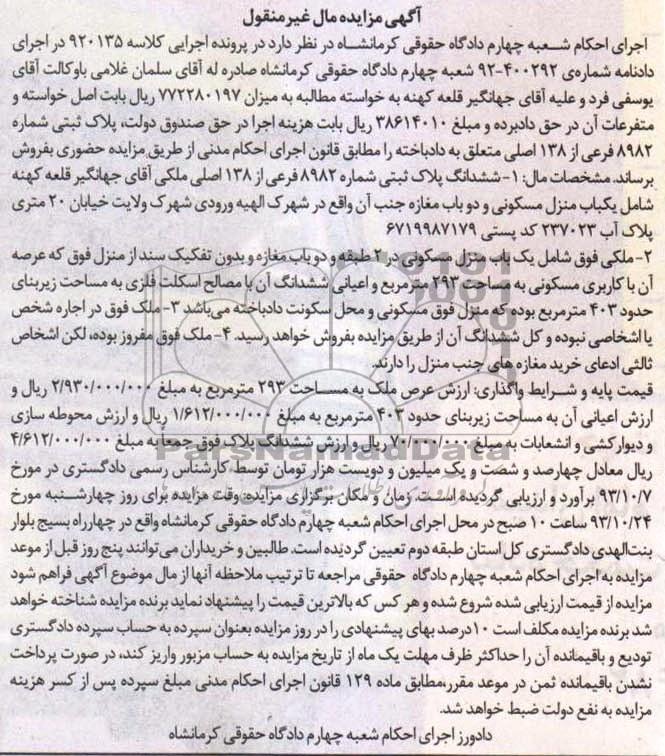 آگهی مزایده مال غیر منقول
اجرای احکام شعبه چهارم دادگاه حقوقی کرمانشاه در نظر دارد در پرونده اجرایی کلاسه ۹۲۰۱۳۵ در اجرای
دادنامه شماره‌ی ۴۰۰۲۹۲-۹۲ شعبه چهارم دادگاه حقوقی کرمانشاه صادره له آقای سلمان غلامی باوکالت آقای
یوسفی فرد و علیه آقای جهانگیر قلعه کهنه به خواسته مطالبه به میزان ۷۷۲۲۸۰۱۹۷ ریال بابت اصل خواسته و
متفرعات آن در حق دادبرده و مبلغ ۳۸۶۱۴۰۱۰ ریال بابت هزینه اجرا در حق صندوق دولت، پلاک ثبتی شماره
۸۹۸۲ فرعی از ۱۳۸ اصلی متعلق به دادباخته را مطابق قانون اجرای احکام مدنی از طریق مزایده حضوری بفروش
برساند. مشخصات مال: ۱- ششدانگ پلاک ثبتی شماره ۸۹۸۲ فرعی از ۱۳۸ اصلی ملکی آقای جهانگیر قلعه کهنه
شامل یکباب منزل مسکونی و دو باب مغازه جنب آن واقع در شهرک الهیه ورودی شهرک ولایت خیابان ۲۰ متری
پلاک آب ۲۳۷۰۲۳ کد پستی ۶۷۱۹۹۸۷۱۷۹
۲- ملکی فوق شامل یک باب منزل مسکونی در ۲ طبقه و دو باب مغازه و بدون تفکیک سند از منزل فوق که عرصه
آن با کاربری مسکونی به مساحت ۲۹۳ مترمربع و اعیانی ششدانگ آن با مصالح اسکلت فلزی به مساحت زیربنای
حدود ۴۰۳ مترمربع بوده که منزل فوق مسکونی و محل سکونت دادباخته می‌باشد ۳- ملک فوق در اجاره شخص
یا اشخاصی نبوده و کل ششدانگ آن از طریق مزایده بفروش خواهد رسید. ۴- ملک فوق مفروز بوده، لکن اشخاص
ثالثی ادعای خرید مغازه های جنب منزل را دارند.
قیمت پایه و شرایط واگذاری: ارزش عرص ملک به مساحت ۲۹۳ مترمربع به مبلغ ۲/۹۳۰/۰۰۰/۰۰۰ ریال و
ارزش اعیانی آن به مساحت زیربنای حدود ۴۰۳ مترمربع به مبلغ ۱/۶۱۲/۰۰۰/۰۰۰ ریال و ارزش محوطه سازی
و دیوارکشی و انشعابات به مبلغ ۷۰/۰۰۰/۰۰۰ ریال و ارزش ششدانگ پلاک فوق جمعاً به مبلغ ۴/۶۱۲/۰۰۰/۰۰۰
ریال معادل چهارصد و شصت و یک میلیون و دویست هزار تومان توسط کارشناس رسمی دادگستری در مورخ
۹۳/۱۰/۷ برآورد و ارزیابی گردیده است. زمان و مکان برگزاری مزایده: وقت مزایده برای روز چهارشنبه مورخ
۹۳/۱۰/۲۴ ساعت ۱۰ صبح در محل اجرای احکام شعبه چهارم دادگاه حقوقی کرمانشاه واقع در چهارراه بسیج بلوار
بنت‌الهدی دادگستری کل استان طبقه دوم تعیین گردیده است. طالبین و خریداران می‌توانند پنج روز قبل از موعد
مزایده به اجرای احکام شعبه چهارم دادگاه حقوقی مراجعه تا ترتیب ملاحظه آنها از مال موضوع آگهی فراهم شود
مزایده از قیمت ارزیابی شده شروع شده و هر کس که بالاترین قیمت را پیشنهاد نماید برنده مزایده شناخته خواهد
شد برنده مزایده مکلف است ۱۰ درصد بهای پیشنهادی را در روز مزایده بعنوان سپرده به حساب سپرده دادگستری
تودیع و باقیمانده آن را حداکثر ظرف مهلت یک ماه از تاریخ مزایده به حساب مزبور واریز کند، در صورت پرداخت
نشدن باقیمانده ثمن در موعد مقرر، مطابق ماده ۱۲۹ قانون اجرای احکام مدنی مبلغ سپرده پس از کسر هزینه
مزایده به نفع دولت ضبط خواهد شد.
دادورز اجرای احکام شعبه چهارم دادگاه حقوقی کرمانشاه
ParsNamadData